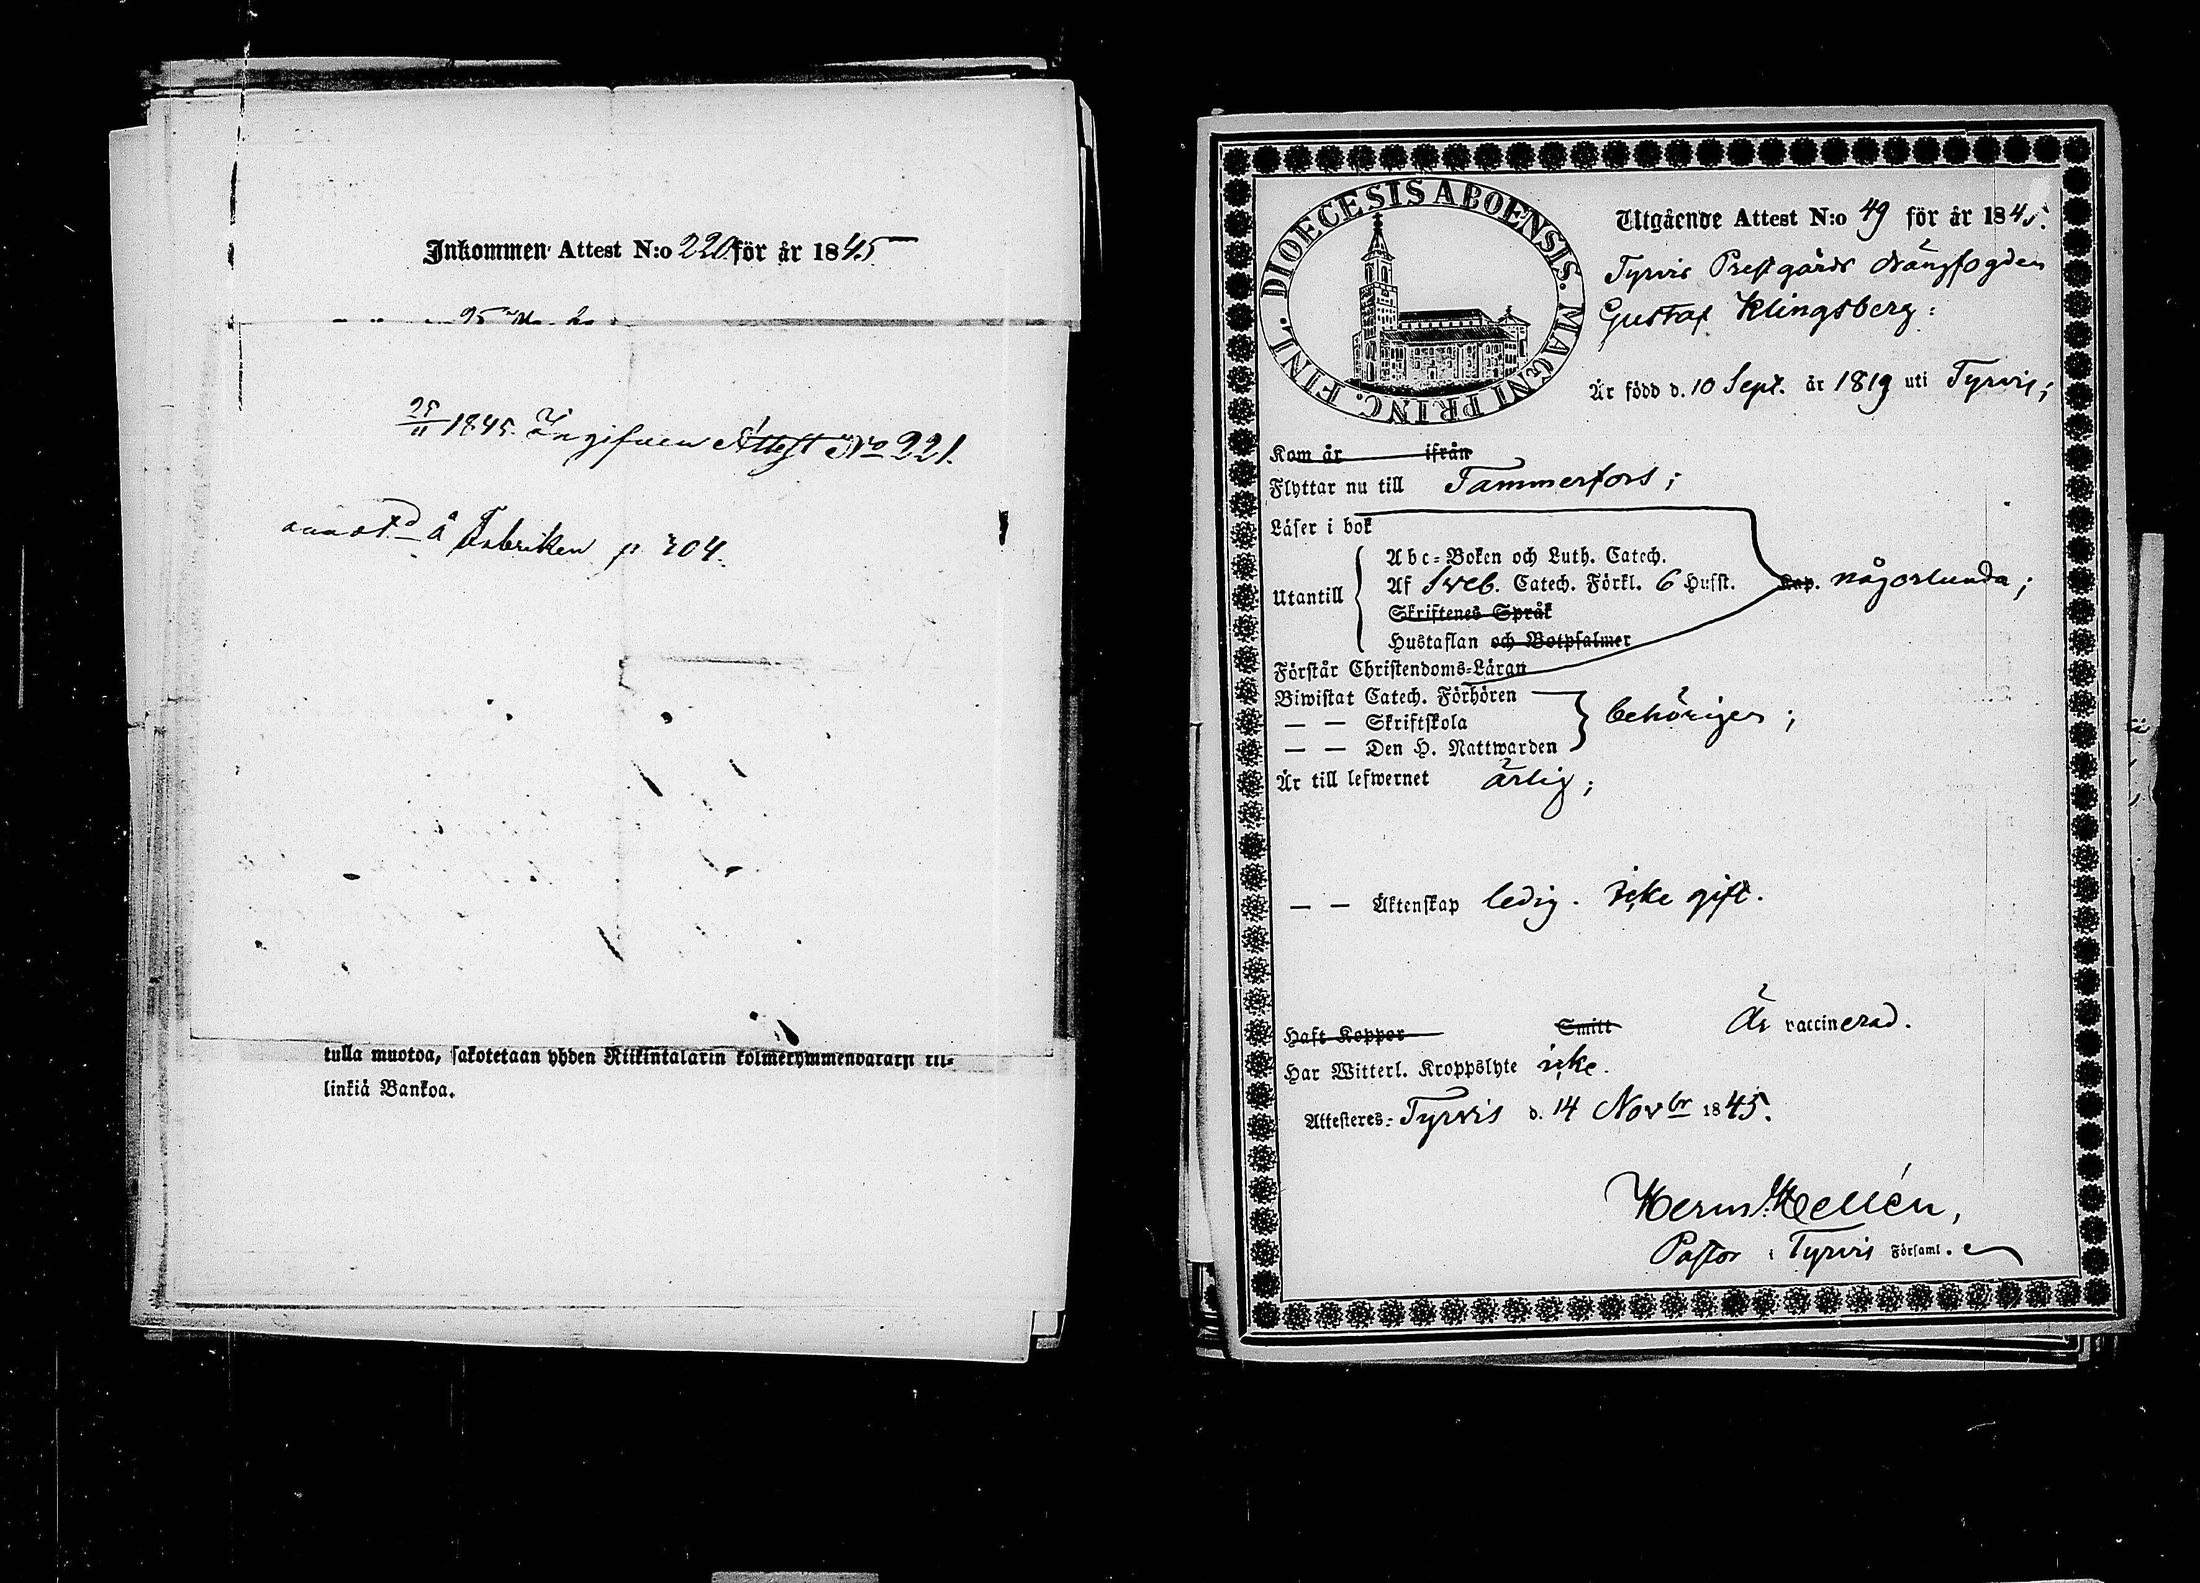 Inkommen Attest N:o 220 för år 1845
25
25/11 1845. Ingifven Attest No 221.
annotd å Fabriken p 304.
tulla muotoa, sakotetaan yhden Riikintalarin kolmekymmendararp ril-
linkiä Bankoa.
DIOECESIS ABOENSIS. MAGNI PRINC. FINL.
Utgående Attest N:o 49 för år 1845.
Tyrvis Prestgårds drängfogden
Gustaf Klingsberg:
Är född d. 10 Sept. år 1819 uti Tyrvis;
Kom år ifrån
Flyttar nu till Tammerfors;
Läser i bok
Abc-Boken och Luth. Catech.
Utantill Af Sveb. Catech. Förkl. 6 Hufst. Kap. någorlunda;
Skriftenes Språk
Hustaflan och Botpsalmer
Förstår Christendoms-Läran
Biwistat Catech. Förhören
— — Skriftskola behörigen;
— — Den H. Nattwarden
Är till lefwernet ärlig;
— — Äktenskap ledig. icke gift.
Haft Koppor Smitt Är vaccinerad.
Har Witterl. Kroppslyte icke.
Attesteres: Tyrvis d. 14 Novbr 1845.
Herm. Hellén,
Pastor i Tyrvis Församl.